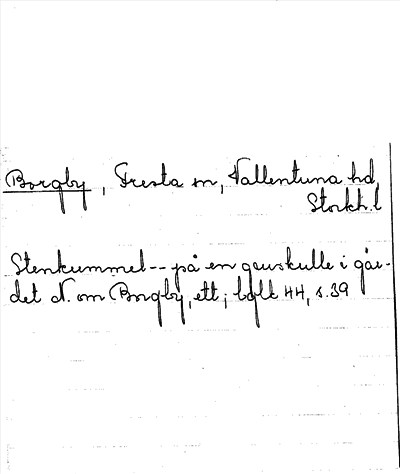 Borgby, Fresta sn, Vallentuna hd,
Stockh.l
Stenkummel -- på en gruskulle i gär-
det N. om Borgby, ett; bqlk 44, s. 39